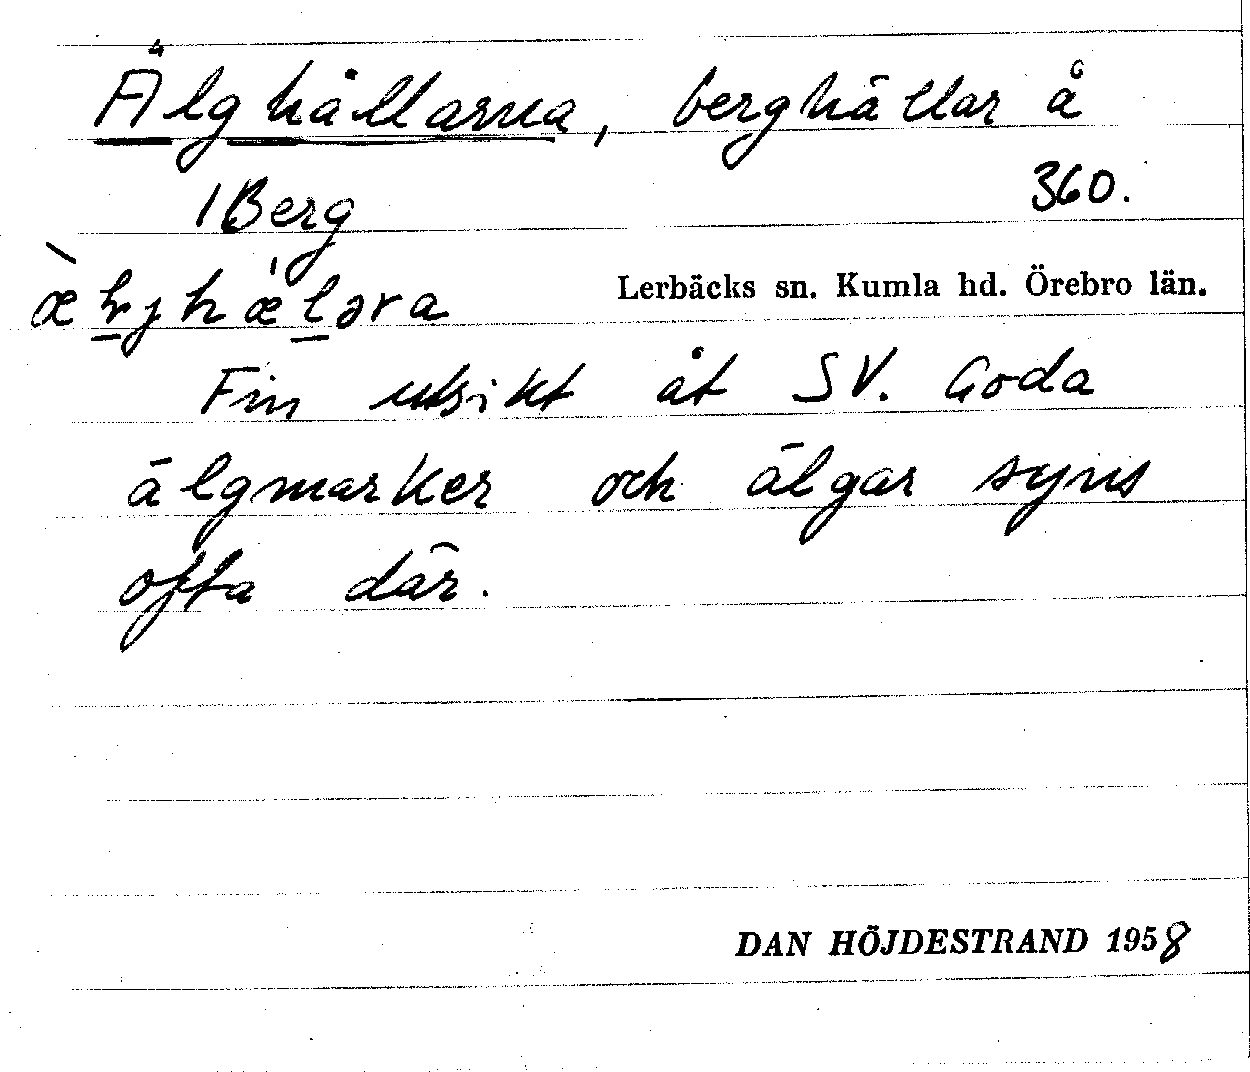 Älghällarna, berghällar å
1 Berg 360.
Lerbäcks sn. Kumla hd. Örebro län.
Fin utsikt åt SV. Goda
älgmarker och älgar syns
ofta där.
DAN HÖJDESTRAND 1958